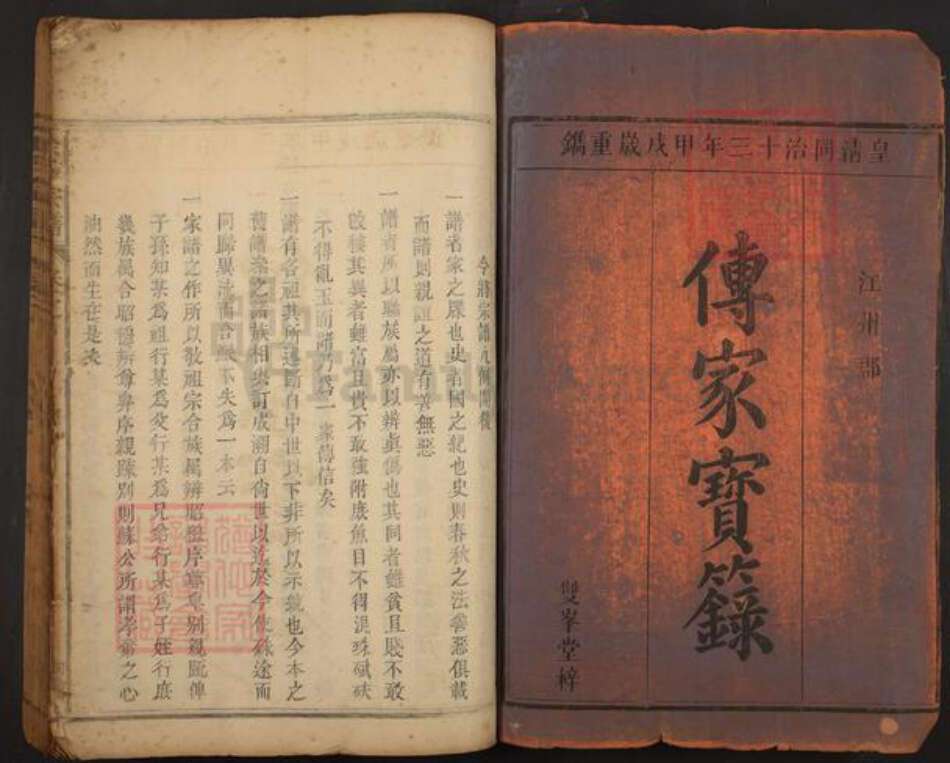 皇清同治十三年甲戌歲重鐫
江州郡
傳家寶籙
雙峯堂梓
今將宗譜凡例開後
一譜者家之牒也史者國之紀也史則春秋之法善惡俱載
而譜則親親之道有善無惡
一譜者所以聯族屬亦以辨眞僞也其同者雖貧且賤不敢
改棄其異者雖富且貴不敢強附庶魚目不得混珠碔砆
不得亂玉而譜乃爲一家傳信矣
一譜有各祖其所逮斷自中世以下非所以示親也今本之
舊譜案之諸族相與訂成溯自尙世以迄於今使殊途而
同歸異流而合源不失爲一本云
一家譜之作所以敘祖宗合族屬辨昭穆序尊卑別親疎俾
子孫知某爲祖行某爲父行某爲兄弟行某爲子姪行庶
幾族屬合昭穆辨尊卑序親疎別則蘇公所謂孝弟之心
油然而生在是矣